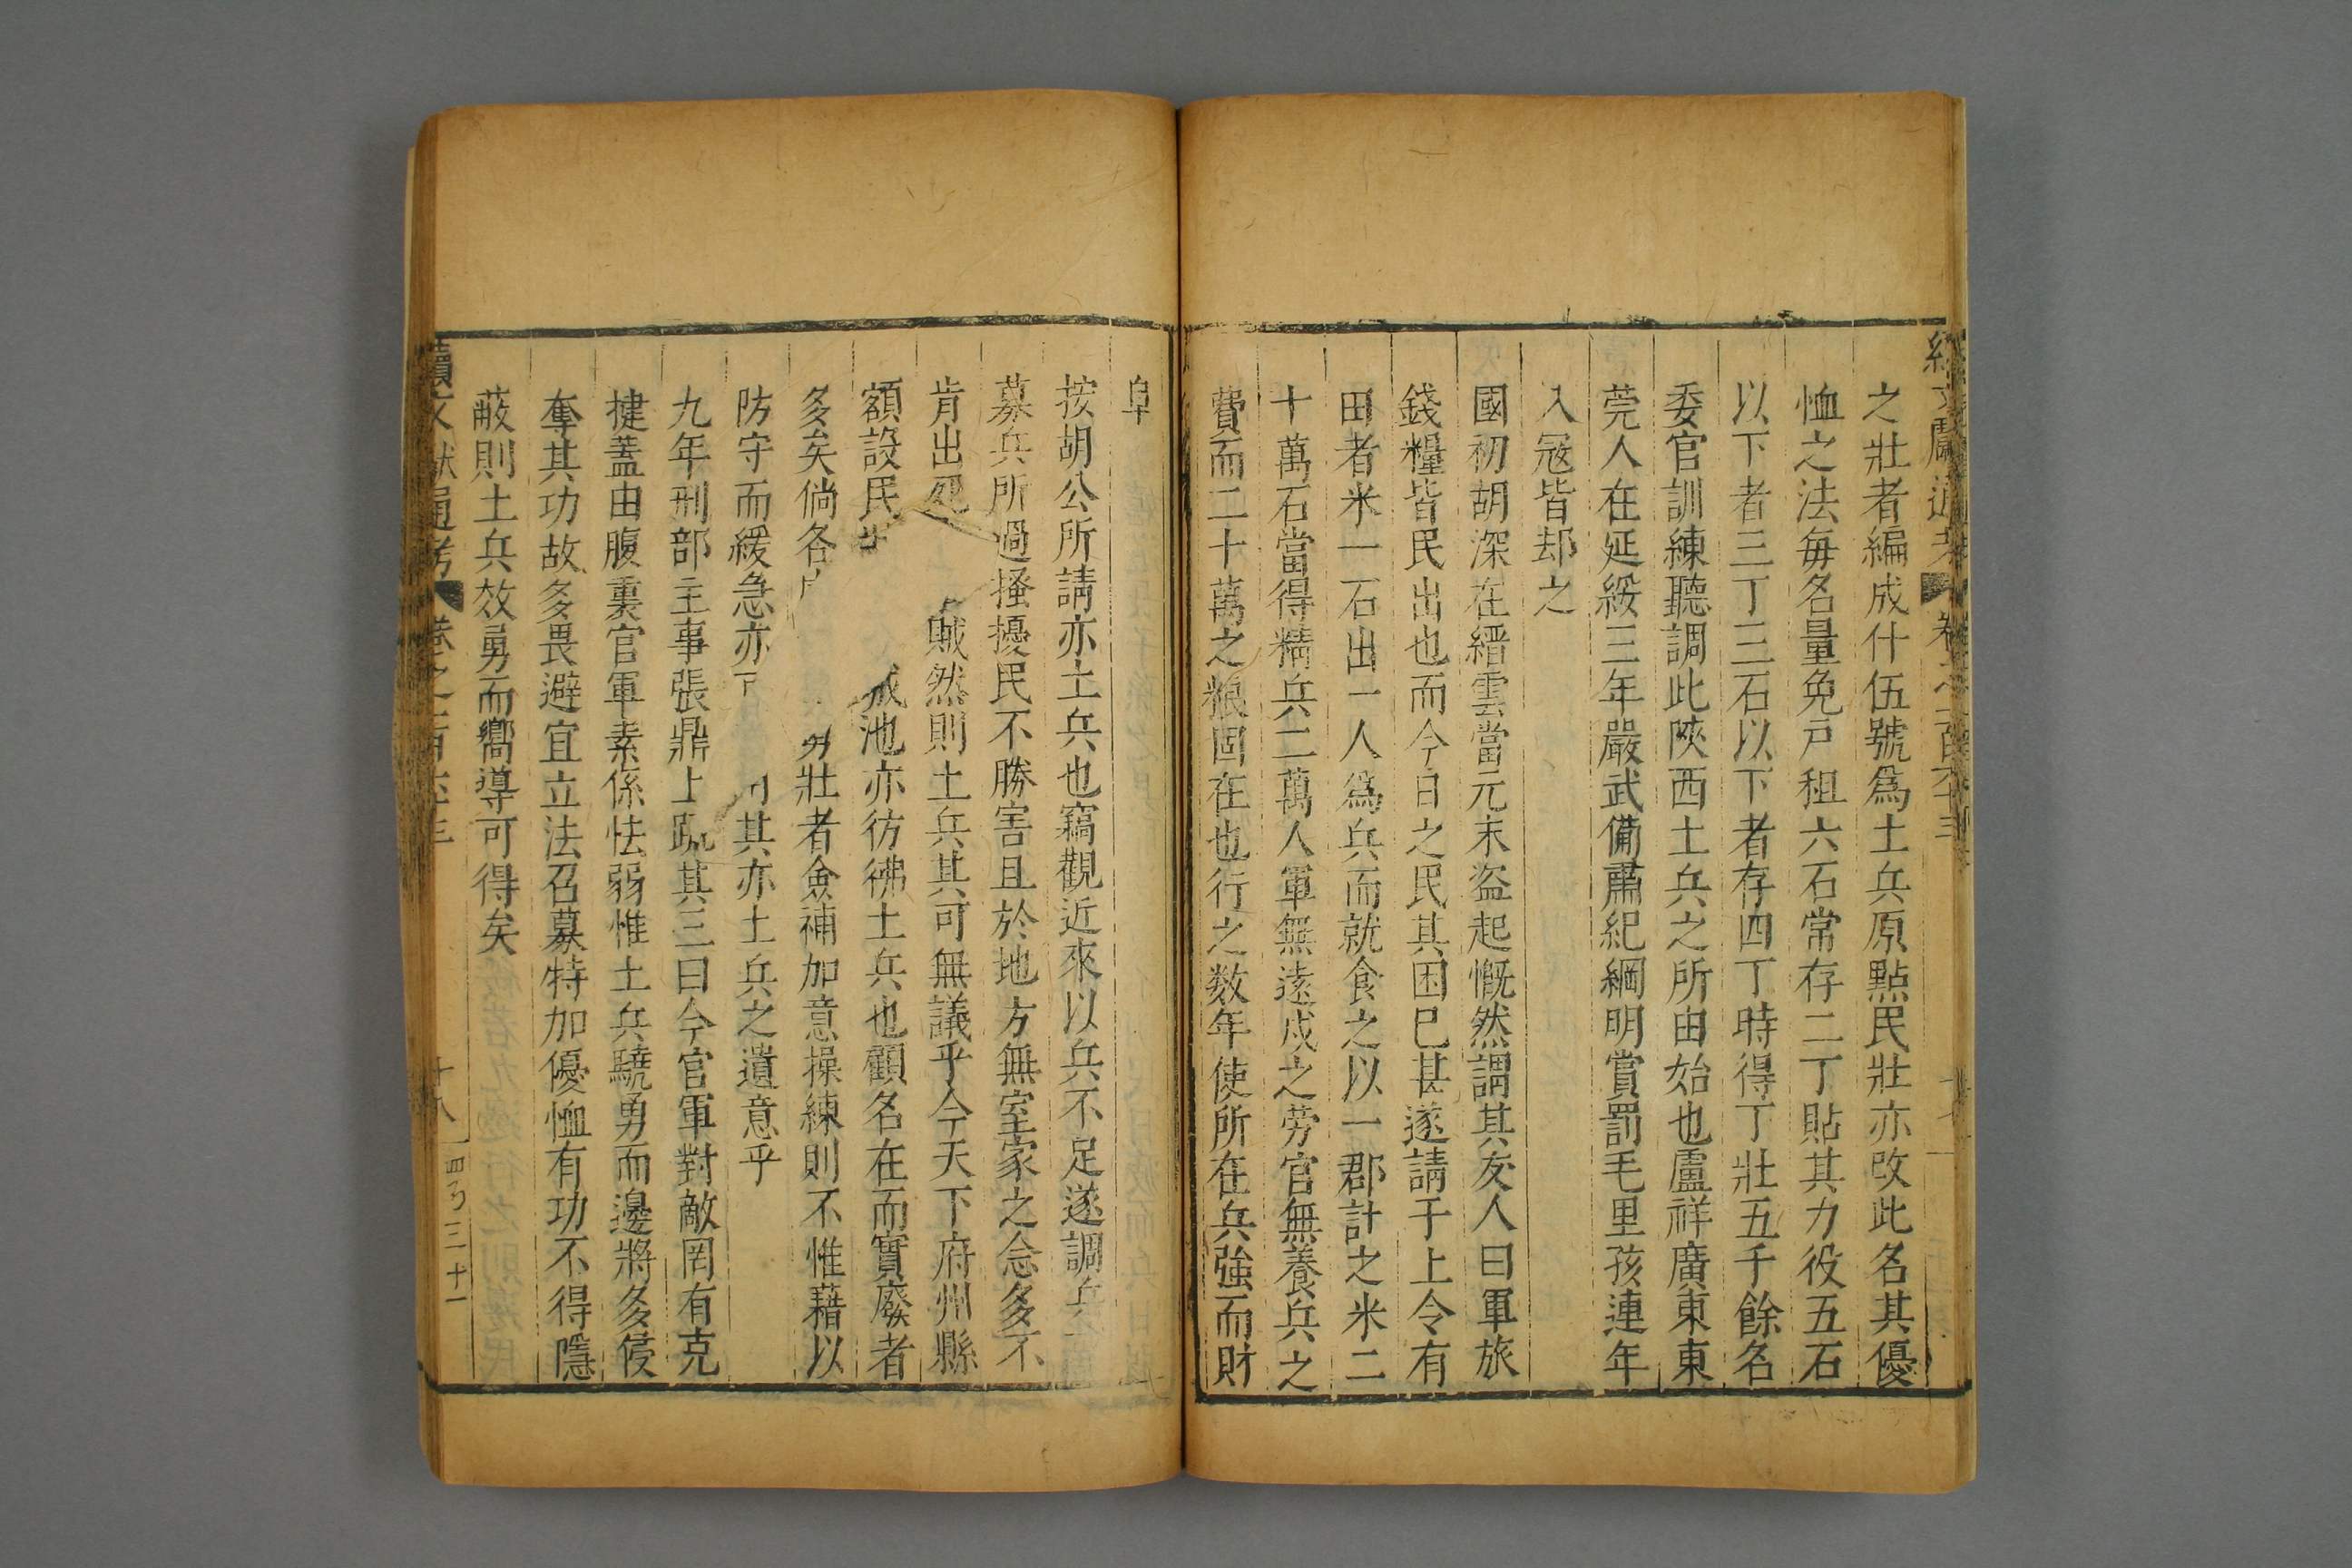 之壯者編成什伍號爲土兵原點民壯亦改此名其優
恤之法每名量免戸租六石常存二丁貼其力役五石
以下者三丁三石以下者存四丁時得丁壯五千餘名
委官訓練聽調此陝西土兵之所由始也盧祥廣東東
莞人在延綏三年嚴武備肅紀綱明賞罰毛里孩連年
入冦皆却之
國初胡深在縉雲當元末盗起慨然謂其友人曰軍旅
錢糧皆民出也而今日之民其困巳甚遂請于上令有
田者米一石出一人爲兵而就食之以一郡計之米二
十萬石當得精兵二萬人軍無遠戍之劳官無養兵之
費而二十萬之粮固在也行之数年使所在兵強而財
阜
按胡公所請亦土兵也竊觀近來以兵不足遂調兵
募兵所過搔擾民不勝害且於地方無室家之念多不
肯出死賊然則土兵其可無議乎今天下府州縣
額設民城池亦彷彿土兵也顧名在而實廢者
多矣倘各壯者僉補加意操練則不惟藉以
防守而緩急亦其亦土兵之遺意乎
九年刑部主事張鼎上䟽其三曰今官軍對敵罔有克
捷蓋由腹裏官軍素係怯弱惟土兵驍勇而邊將多侵
奪其功故多畏避宜立法召募特加優恤有功不得隱
蔽則土兵效勇而嚮導可得矣
續文獻通考 卷之一百六十三
十八